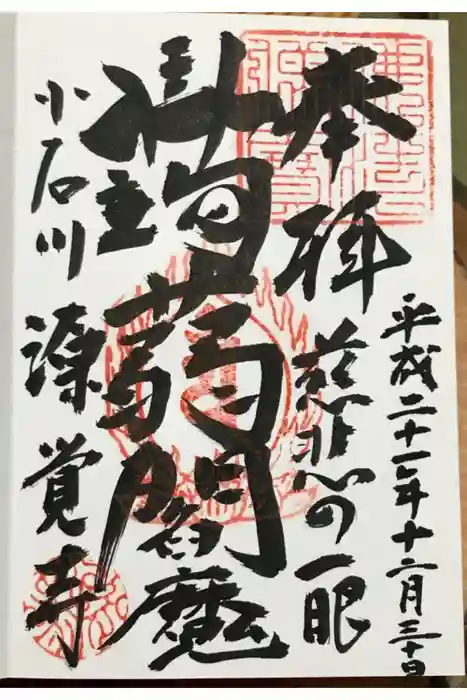 平成二十一年十二月三十日
奉拝
慈悲の一眼
蒟蒻閻魔
小石川
源覚寺